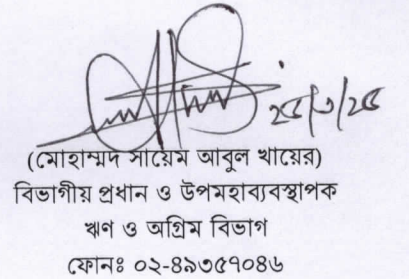 ২৫/৩/২৫
(মোহাম্মদ সায়েম আবুল খায়ের)
বিভাগীয় প্রধান ও উপমহাব্যবস্থাপক
ঋণ ও অগ্রিম বিভাগ
ফোনঃ ০২-৪৯৩৫৭০৪৬